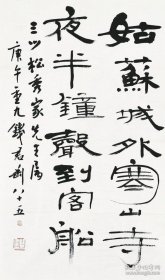 姑蘇城外寒山寺
夜半鐘聲到客船
三松秀家先生属
庚午重九錢君匋八十五